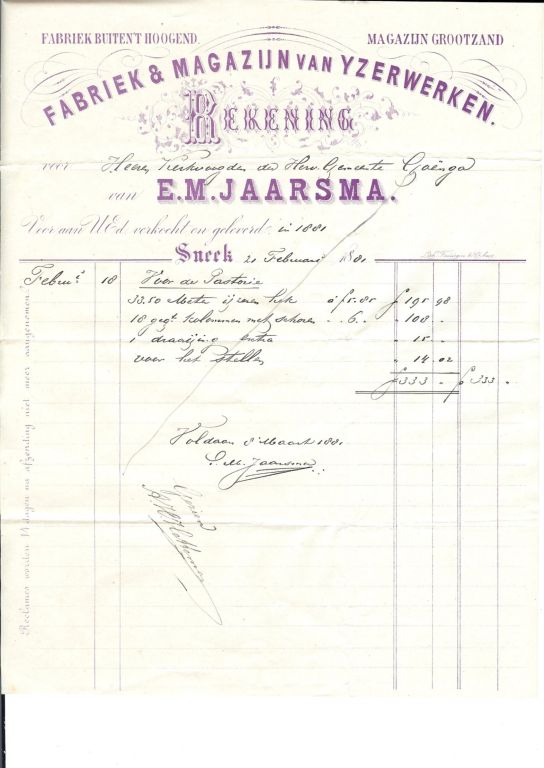 FABRIEK BUITEN'T HOOGEND. MAGAZIJN GROOTZAND
FABRIEK & MAGAZIJN VAN YZERWERKEN.
REKENING
voor Heeren Kerkvoogden der Herv. Gemeente Goënga
van E.M. JAARSMA.
Voor aan UEd. verkocht en geleverd in 1881
Sneek 21 Februari 1881
Febru. 18 Voor de Pastorie
33,50 Meter ijzeren hek à f 5.85 f 195 98
18 gegt kolommen met schoren " 6 " " 108 "
1 draaijing extra " 15 "
voor het stellen " 14 02
f 333 " f 333 "
Voldaan 8 Maart 1881
E. M. Jaarsma
Gezien
Reclames worden 14 dagen na afzending niet meer aangenomen.